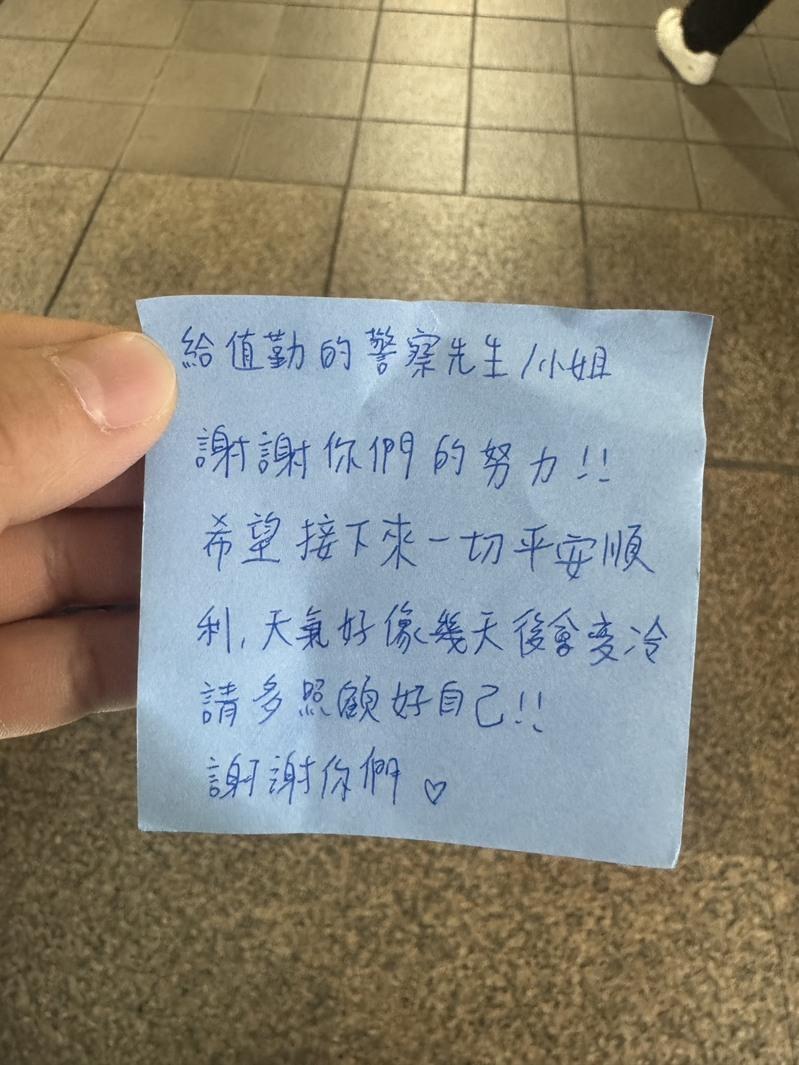 給值勤的警察先生/小姐
謝謝你們的努力!!
希望接下來一切平安順
利,天氣好像幾天後會變冷
請多照顧好自己!!
謝謝你們♡